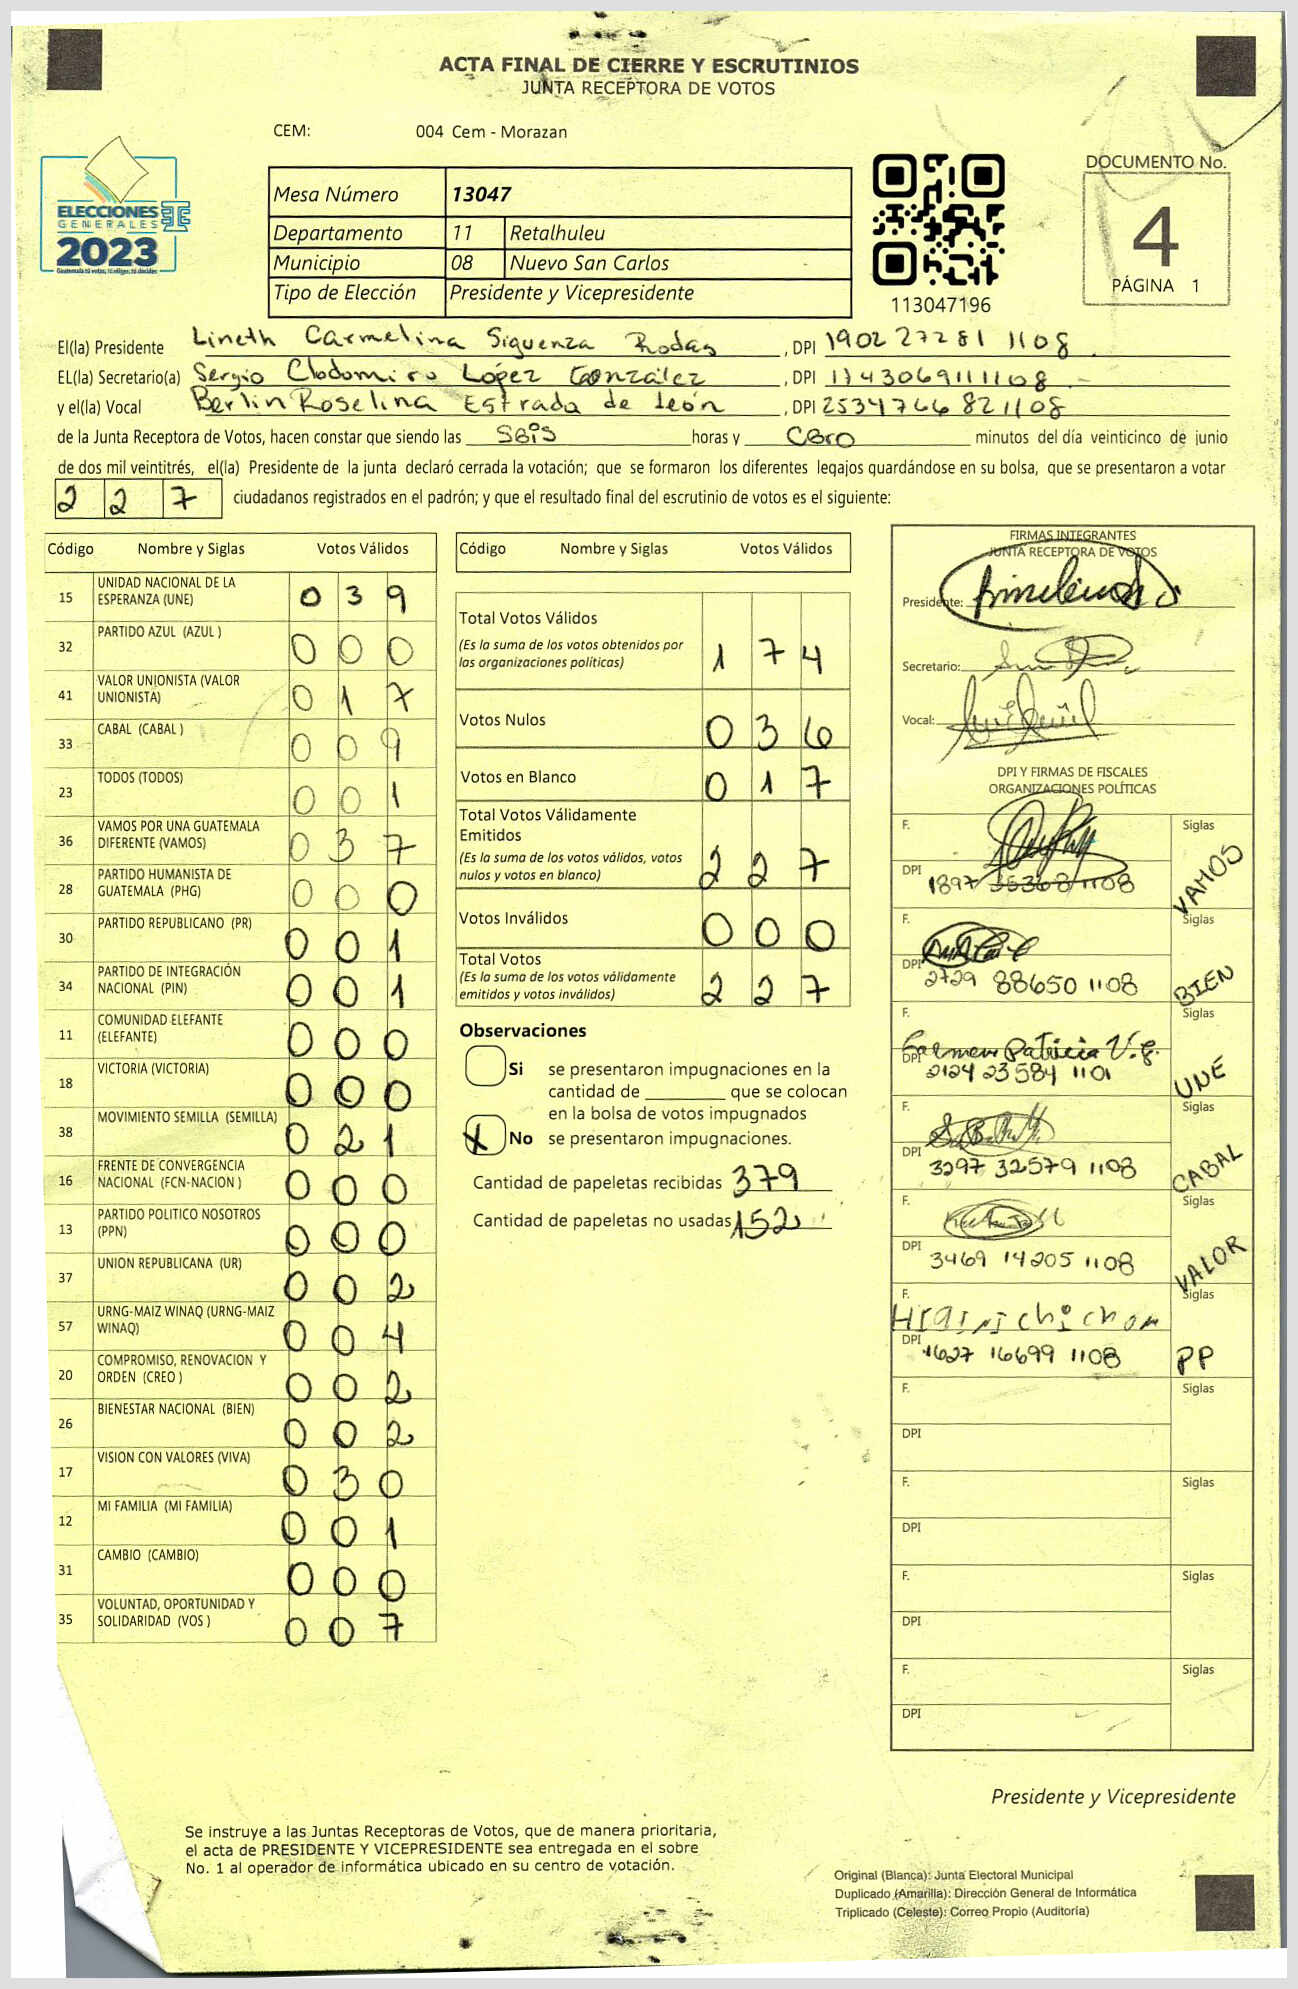 ACTA FINAL DE CIERRE Y ESCRUTINIOS
JUNTA RECEPTORA DE VOTOS
CEM: 004 Cem - Morazan
ELECCIONES
GENERALES
2023
Guatemala tú votas, tú eliges, tú decides
Mesa Número 13047
Departamento 11 Retalhuleu
Municipio 08 Nuevo San Carlos
Tipo de Elección Presidente y Vicepresidente
113047196
DOCUMENTO No.
4
PÁGINA 1
El(la) Presidente Lineth Carmelina Siguenza Rodas, DPI 1902 27281 1108
EL(la) Secretario(a) Sergio Clodomiro López González, DPI 1743069111108.-
y el(la) Vocal Berlin Roselina Estrada de león, DPI 2534766821108
de la Junta Receptora de Votos, hacen constar que siendo las Seis horas y Cero minutos del día veinticinco de junio
de dos mil veintitrés, el(la) Presidente de la junta declaró cerrada la votación; que se formaron los diferentes legajos guardándose en su bolsa, que se presentaron a votar
2 2 7 ciudadanos registrados en el padrón; y que el resultado final del escrutinio de votos es el siguiente:
Código Nombre y Siglas Votos Válidos
15 UNIDAD NACIONAL DE LA ESPERANZA (UNE) 0 3 9
32 PARTIDO AZUL (AZUL ) 0 0 0
41 VALOR UNIONISTA (VALOR UNIONISTA) 0 1 7
33 CABAL (CABAL ) 0 0 9
23 TODOS (TODOS) 0 0 1
36 VAMOS POR UNA GUATEMALA DIFERENTE (VAMOS) 0 3 7
28 PARTIDO HUMANISTA DE GUATEMALA (PHG) 0 0 0
30 PARTIDO REPUBLICANO (PR) 0 0 1
34 PARTIDO DE INTEGRACIÓN NACIONAL (PIN) 0 0 1
11 COMUNIDAD ELEFANTE (ELEFANTE) 0 0 0
18 VICTORIA (VICTORIA) 0 0 0
38 MOVIMIENTO SEMILLA (SEMILLA) 0 2 1
16 FRENTE DE CONVERGENCIA NACIONAL (FCN-NACION ) 0 0 0
13 PARTIDO POLITICO NOSOTROS (PPN) 0 0 0
37 UNION REPUBLICANA (UR) 0 0 2
57 URNG-MAIZ WINAQ (URNG-MAIZ WINAQ) 0 0 4
20 COMPROMISO, RENOVACION Y ORDEN (CREO ) 0 0 2
26 BIENESTAR NACIONAL (BIEN) 0 0 2
17 VISION CON VALORES (VIVA) 0 3 0
12 MI FAMILIA (MI FAMILIA) 0 0 1
31 CAMBIO (CAMBIO) 0 0 0
35 VOLUNTAD, OPORTUNIDAD Y SOLIDARIDAD (VOS ) 0 0 7
Código Nombre y Siglas Votos Válidos
Total Votos Válidos 1 7 4
(Es la suma de los votos obtenidos por
las organizaciones políticas)
Votos Nulos 0 3 6
Votos en Blanco 0 1 7
Total Votos Válidamente
Emitidos 2 2 7
(Es la suma de los votos válidos, votos
nulos y votos en blanco)
Votos Inválidos 0 0 0
Total Votos 2 2 7
(Es la suma de los votos válidamente
emitidos y votos inválidos)
Observaciones
Si se presentaron impugnaciones en la
cantidad de ________ que se colocan
en la bolsa de votos impugnados
X No se presentaron impugnaciones.
Cantidad de papeletas recibidas 379
Cantidad de papeletas no usadas 152
FIRMAS INTEGRANTES
JUNTA RECEPTORA DE VOTOS
Presidente:
Secretario:
Vocal:
DPI Y FIRMAS DE FISCALES
ORGANIZACIONES POLÍTICAS
F. Siglas VAMOS
DPI 1897 35368 1108
F. Siglas BIEN
DPI 2729 88650 1108
F. Carmen Patricia V. G. Siglas UNE
DPI 2124 23584 1101
F. Siglas CABAL
DPI 3297 32579 1108
F. Siglas VALOR
DPI 3469 14205 1108
F. Siglas PP
DPI 1627 16699 1108
F. Siglas
DPI
F. Siglas
DPI
F. Siglas
DPI
F. Siglas
DPI
Presidente y Vicepresidente
Se instruye a las Juntas Receptoras de Votos, que de manera prioritaria,
el acta de PRESIDENTE Y VICEPRESIDENTE sea entregada en el sobre
No. 1 al operador de informática ubicado en su centro de votación.
Original (Blanca): Junta Electoral Municipal
Duplicado (Amarilla): Dirección General de Informática
Triplicado (Celeste): Correo Propio (Auditoría)